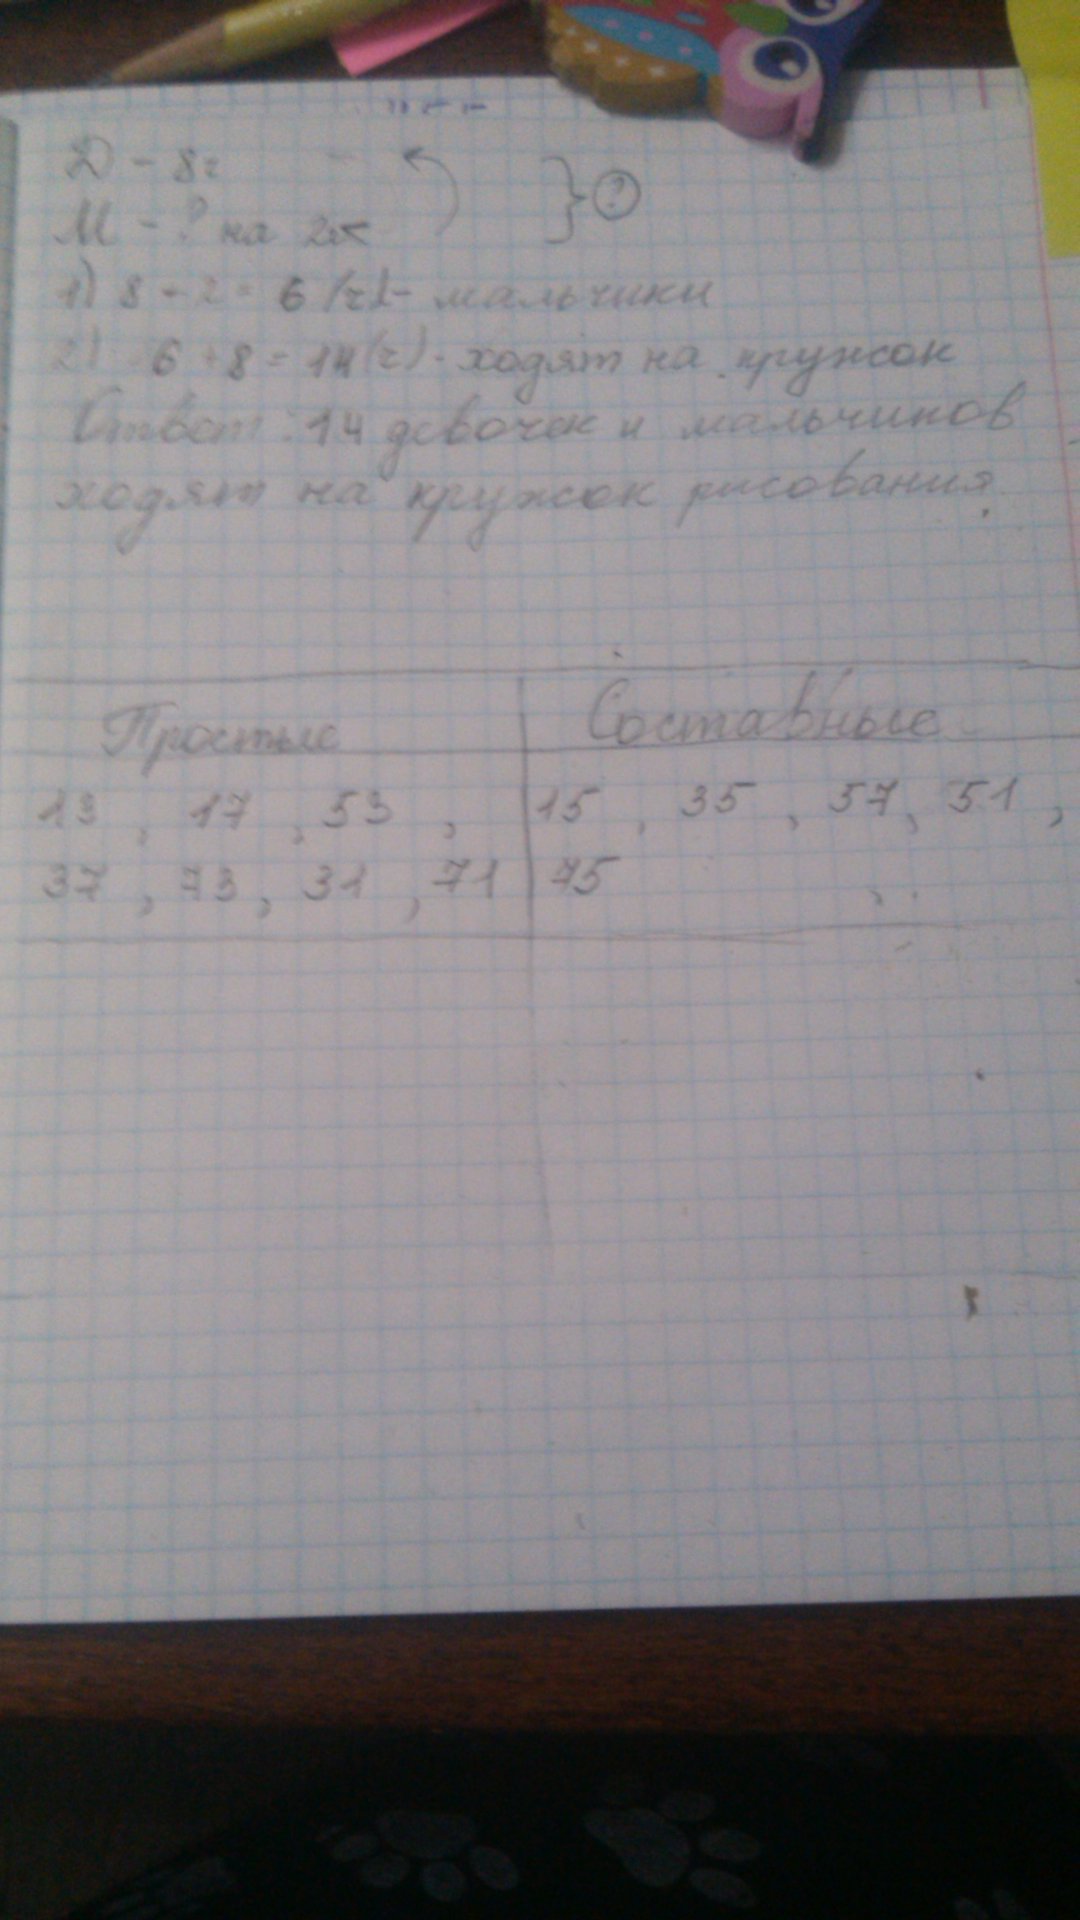 Д - 8ч
М - ? на 2м
} ?
1) 8 - 2 = 6 (ч) - мальчики
2) 6 + 8 = 14 (ч) - ходят на кружок
Ответ: 14 девочек и мальчиков
ходят на кружок рисования.
Простые Составные
13, 17, 53, 15, 35, 57, 51,
37, 73, 31, 71 75